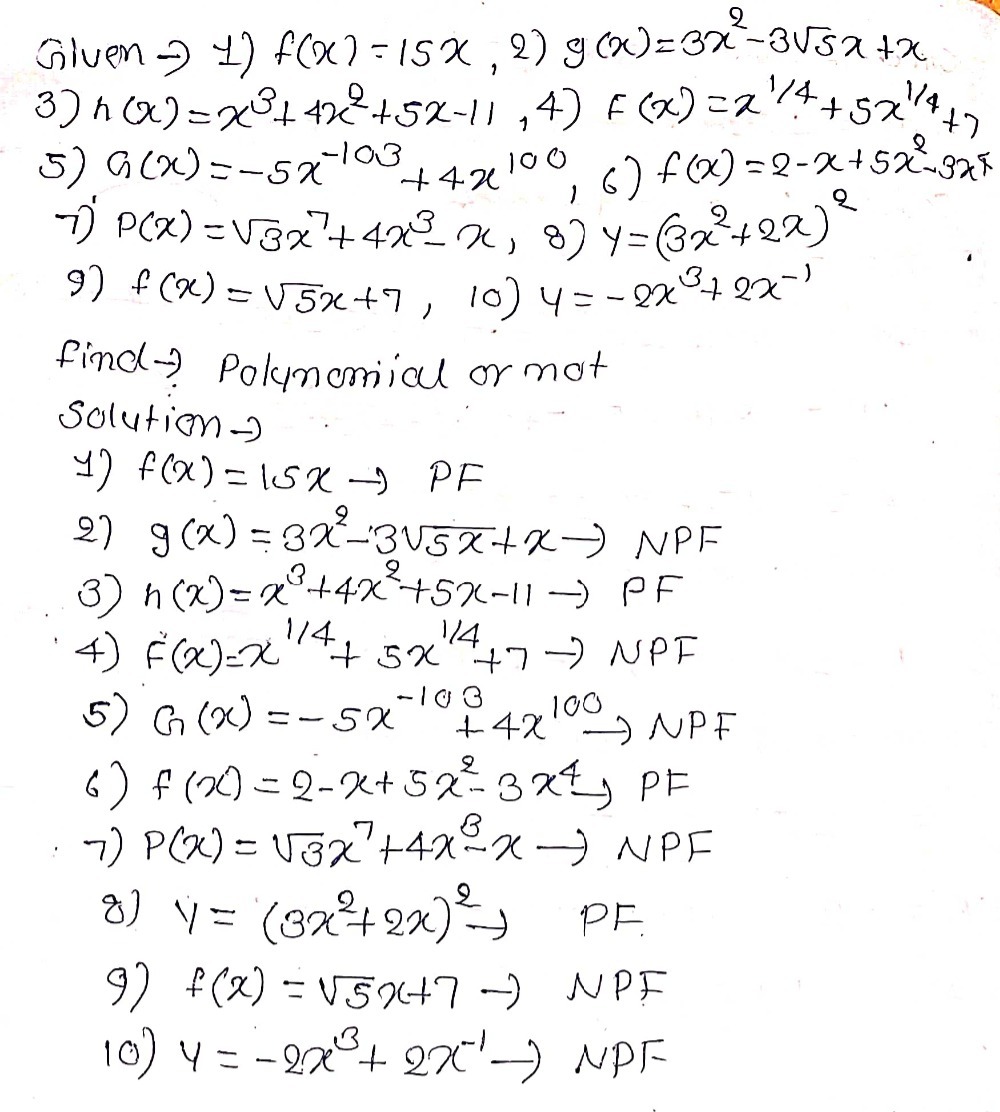 Given → 1) f(x) = 15x, 2) g(x) = 3x² - 3√5x + x
3) h(x) = x³ + 4x² + 5x - 11, 4) F(x) = x^1/4 + 5x^1/4 + 7
5) G(x) = -5x^-103 + 4x^100, 6) f(x) = 2 - x + 5x² - 3x⁴
7) P(x) = √3x⁷ + 4x³ - x, 8) y = (3x² + 2x)²
9) f(x) = √5x + 7, 10) y = -2x³ + 2x^-1
find → Polynomial or not
Solution →
1) f(x) = 15x → PF
2) g(x) = 3x² - 3√5x + x → NPF
3) h(x) = x³ + 4x² + 5x - 11 → PF
4) F(x) = x^1/4 + 5x^1/4 + 7 → NPF
5) G(x) = -5x^-103 + 4x^100 → NPF
6) f(x) = 2 - x + 5x² - 3x⁴ → PF
7) P(x) = √3x⁷ + 4x³ - x → NPF
8) y = (3x² + 2x)² → PF.
9) f(x) = √5x + 7 → NPF
10) y = -2x³ + 2x^-1 → NPF